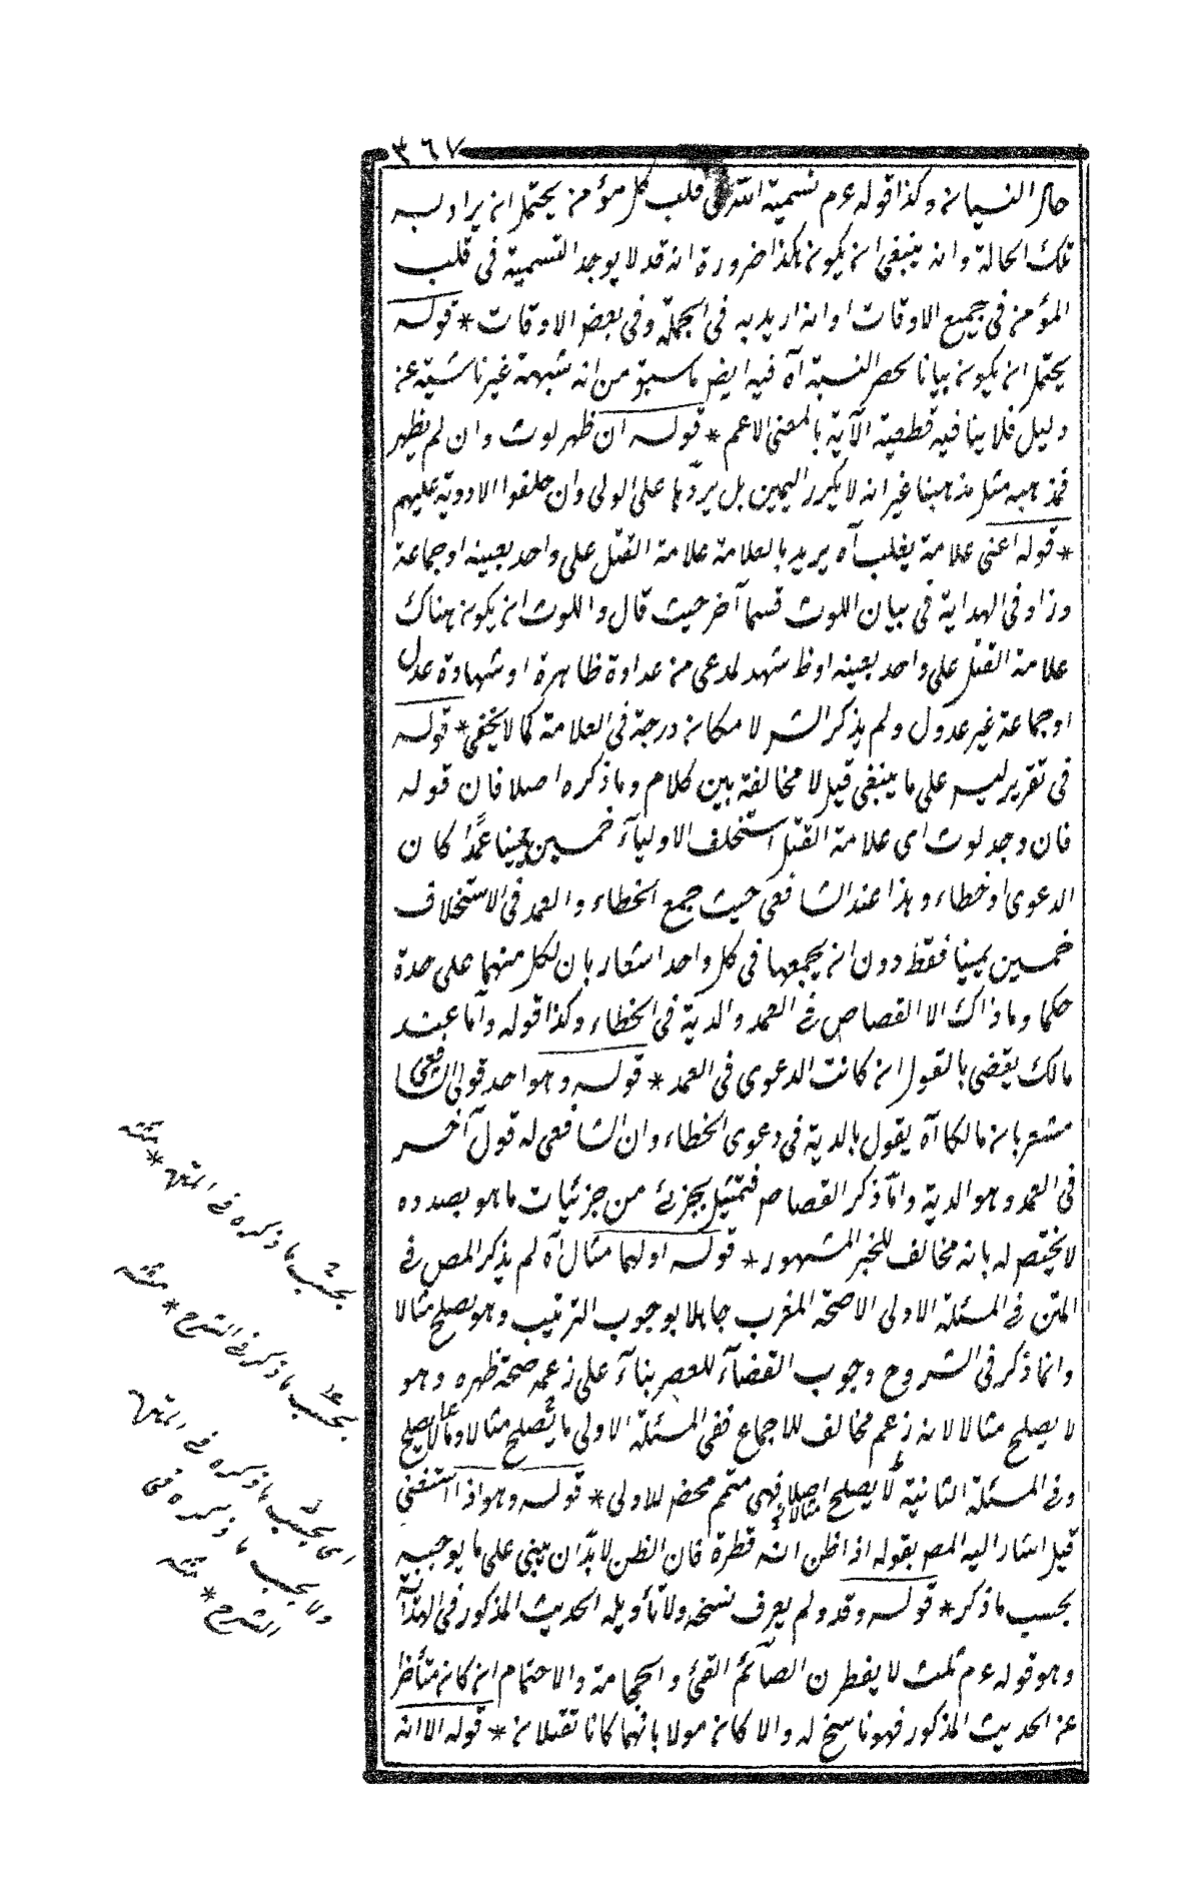 ٣٦٧
حال النسيان وكذا قوله عم تسمية الله في قلب كل مؤمن يحتمل ان يراد به
تلك الحالة وانه ينبغي ان يكون هكذا ضرورة انه قد لا يوجد التسمية في قلب
المؤمن في جميع الاوقات اوانه اريد به في الجملة وفي بعض الاوقات * قوله
يحتمل ان يكون بيانا لحصر النسبة آه فيه ايض ما سبق من انه شبهة غير ناشية عن
دليل فلا ينافيه قطعية الآية بالمعنى الاعم * قوله ان ظهر لوث وان لم يظهر
فمذهبه مثل مذهبنا غير انه لا يكرر اليمين بل يردها على الولى وان حلفوا الا دية عليهم
* قوله اعنى علامة يغلب آه يريد بالعلامة علامة القتل على واحد بعينه او جماعة
وزاد في الهداية في بيان اللوث قسما آخر حيث قال واللوث ان يكون هناك
علامة القتل على واحد بعينه او ظ شهد لمدعى من عداوة ظاهرة او شهادة عدل
او جماعة غير عدول ولم يذكر الشر لامكان درجة في العلامة كما لا يخفى * قوله
في تقرير ليس على ما ينبغي قيل لا مخالفة بين كلام وما ذكره اصلا فان قوله
فان وجد لوث اى علامة القتل استحلف الاولياء خمسين يمينا عمدا كان
الدعوى او خطاء وهذا عند الشافعى حيث جمع الخطاء والعمد في الاستحلاف
خمسين يمينا فقط دون ان يجمعها في كل واحد اشعار بان لكل منهما على حدة
حكما وما ذاك الا القصاص في العمد والدية في الخطاء وكذا قوله واما عند
مالك يقضى بالقود ان كانت الدعوى في العمد * قوله وهو احد قولى الشافعى
مشعر بان مالكا آه يقول بالدية في دعوى الخطاء وان الشافعى له قول آخر
في العمد وهو الدية واما ذكر القصاص فتمثيل بجزئى من جزئيات ما هو بصدده
لا يختص له بانه مخالف للخبر المشهور * قوله اولهما مثال آه لم يذكر المص في
المتن في المسئلة الاولى الا صحة المغرب جاهلا بوجوب الترتيب وهو يصلح مثالا
وانما ذكر في الشروح وجوب القضاء للعصر بناء على زعمه صحة ظهره وهو
لا يصلح مثالا لانه زعم مخالف للاجماع ففى المسئلة الاولى ما يصلح مثالا وما لا يصلح
وفي المسئلة الثانية لا يصلح اصلا مثالا فهى متمم محض للاولى * قوله وهو اذا استفتى
قيل اشار اليه المص بقوله اذا ظن انه فطره فان الظن لابد ان يبنى على ما يوجبه
بحسب ما ذكر * قوله وقد ولم يعرف نسخه ولا تأويله الحديث المذكور في الهداية
وهو قوله عم ثلث لا يفطرن الصائم القئ والحجامة والاحتلام ان كان متأخرا
عن الحديث المذكور فهو ناسخ له والا كان مولا بانهما كانا تغتبان * قوله الا انه
بحسب ما ذكره في المتن *
منه
بحسب ما ذكر في الشرح *
منه
اى بحسب ما ذكره في المتن
ولا بحسب ما ذكره في
الشرح *
منه